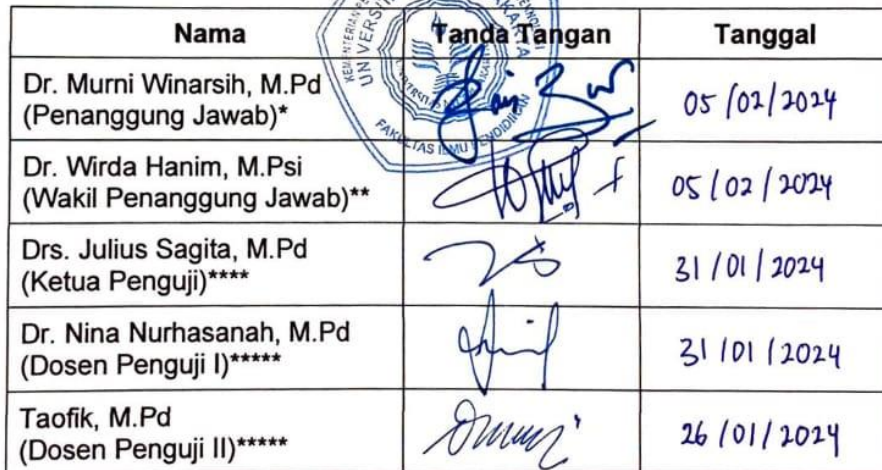 Nama Tanda Tangan Tanggal
Dr. Murni Winarsih, M.Pd
(Penanggung Jawab)* 05/02/2024
Dr. Wirda Hanim, M.Psi
(Wakil Penanggung Jawab)** 05/02/2024
Drs. Julius Sagita, M.Pd
(Ketua Penguji)**** 31/01/2024
Dr. Nina Nurhasanah, M.Pd
(Dosen Penguji I)***** 31/01/2024
Taofik, M.Pd
(Dosen Penguji II)***** 26/01/2024
FAKULTAS ILMU PENDIDIKAN